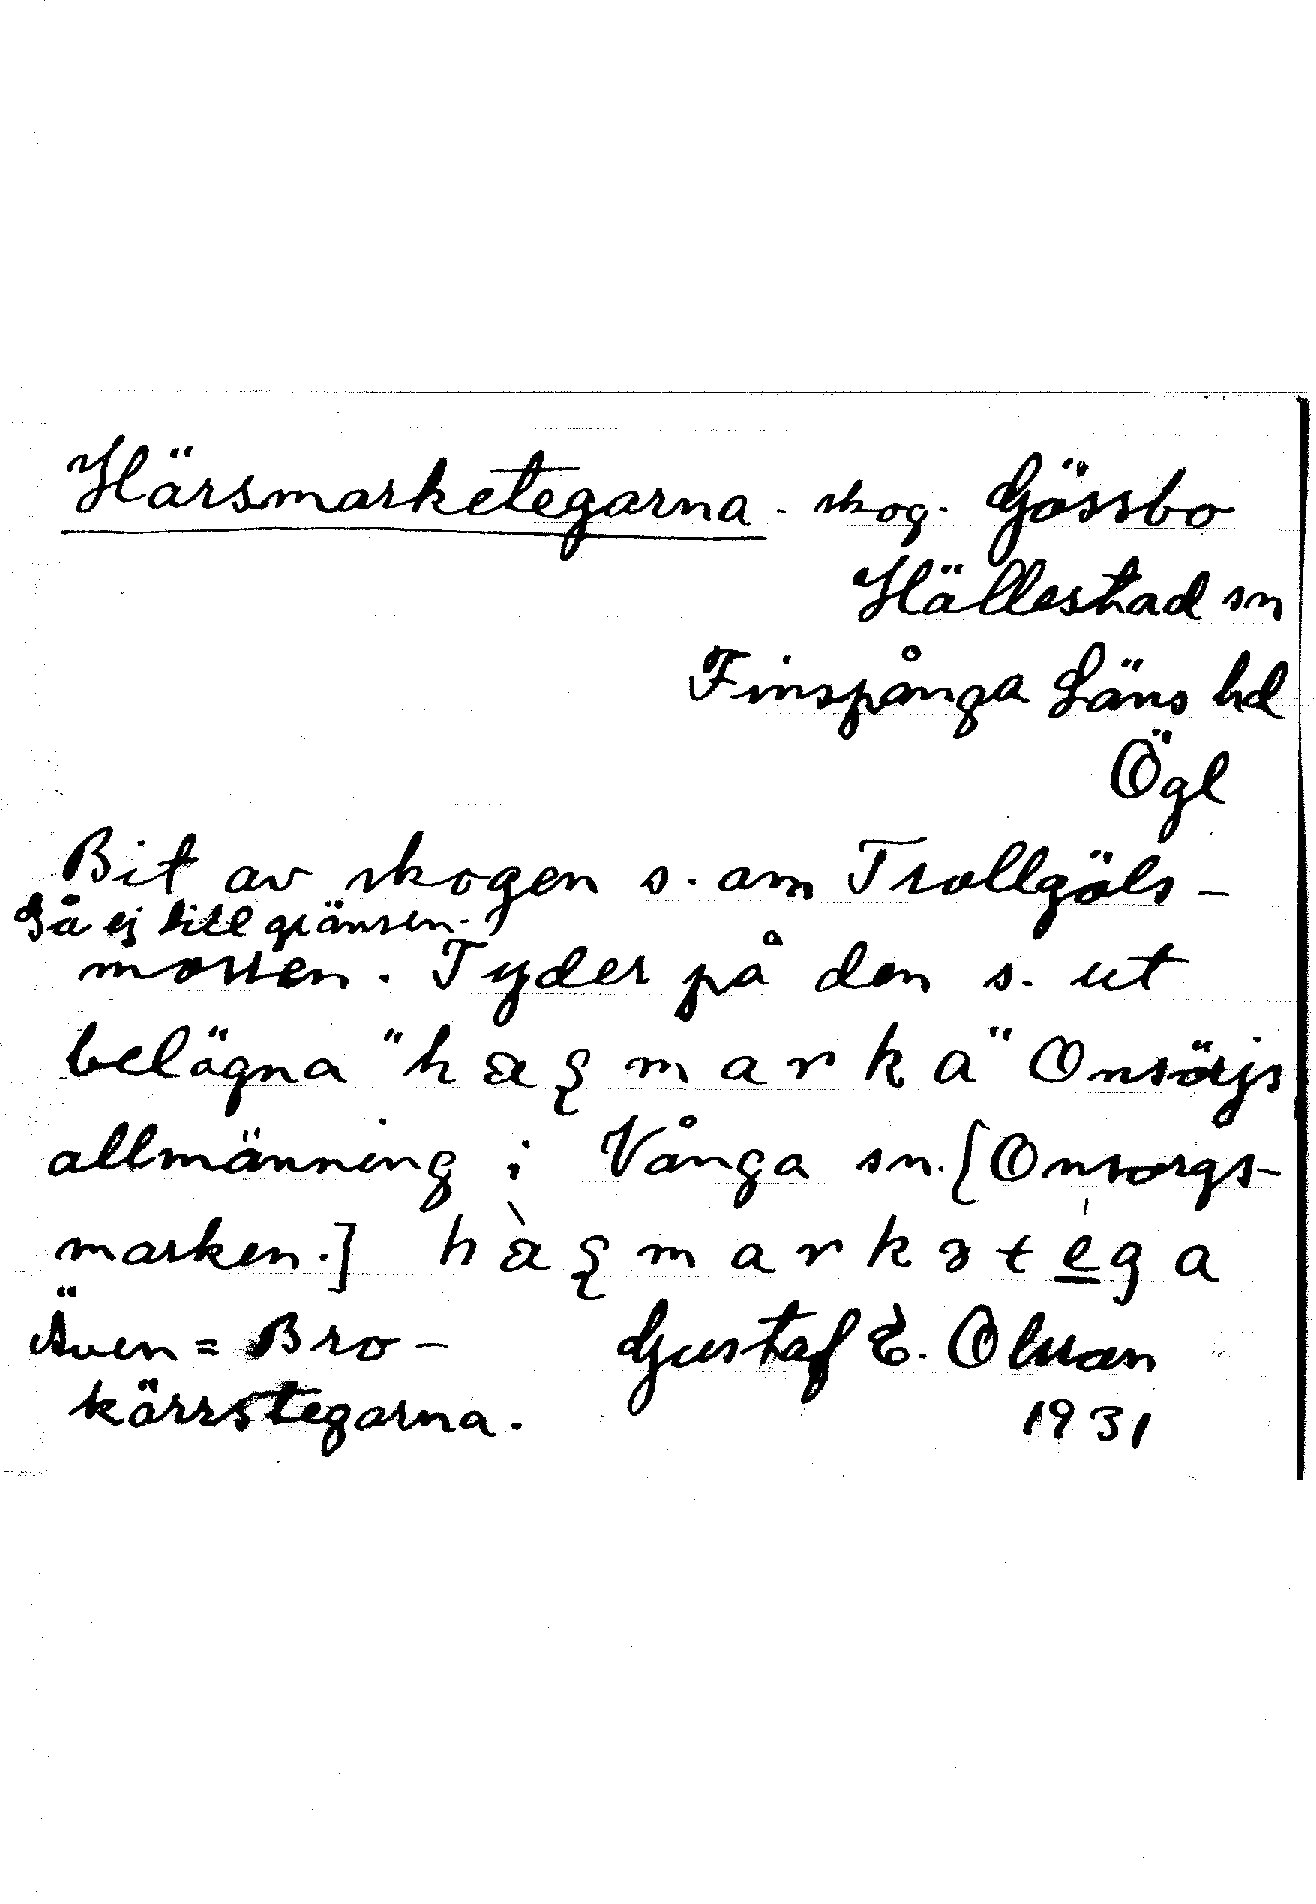 Härsmarketegarna. skog. Gössbo
Hällestad sn
Finspånga Läns hd
Ögl
Bit av skogen s. om Trollgöls-
Gå ej till gränsen.
mossen. Tyder på den s. ut
belägna "hæʂmarka" Onsörjs
allmänning i Vånga sn. [Onsorgs-
marken.] hæ̀ʂmarkətéga
Även = Bro-
kärrstegarna.
Gustaf E. Olsson
1931